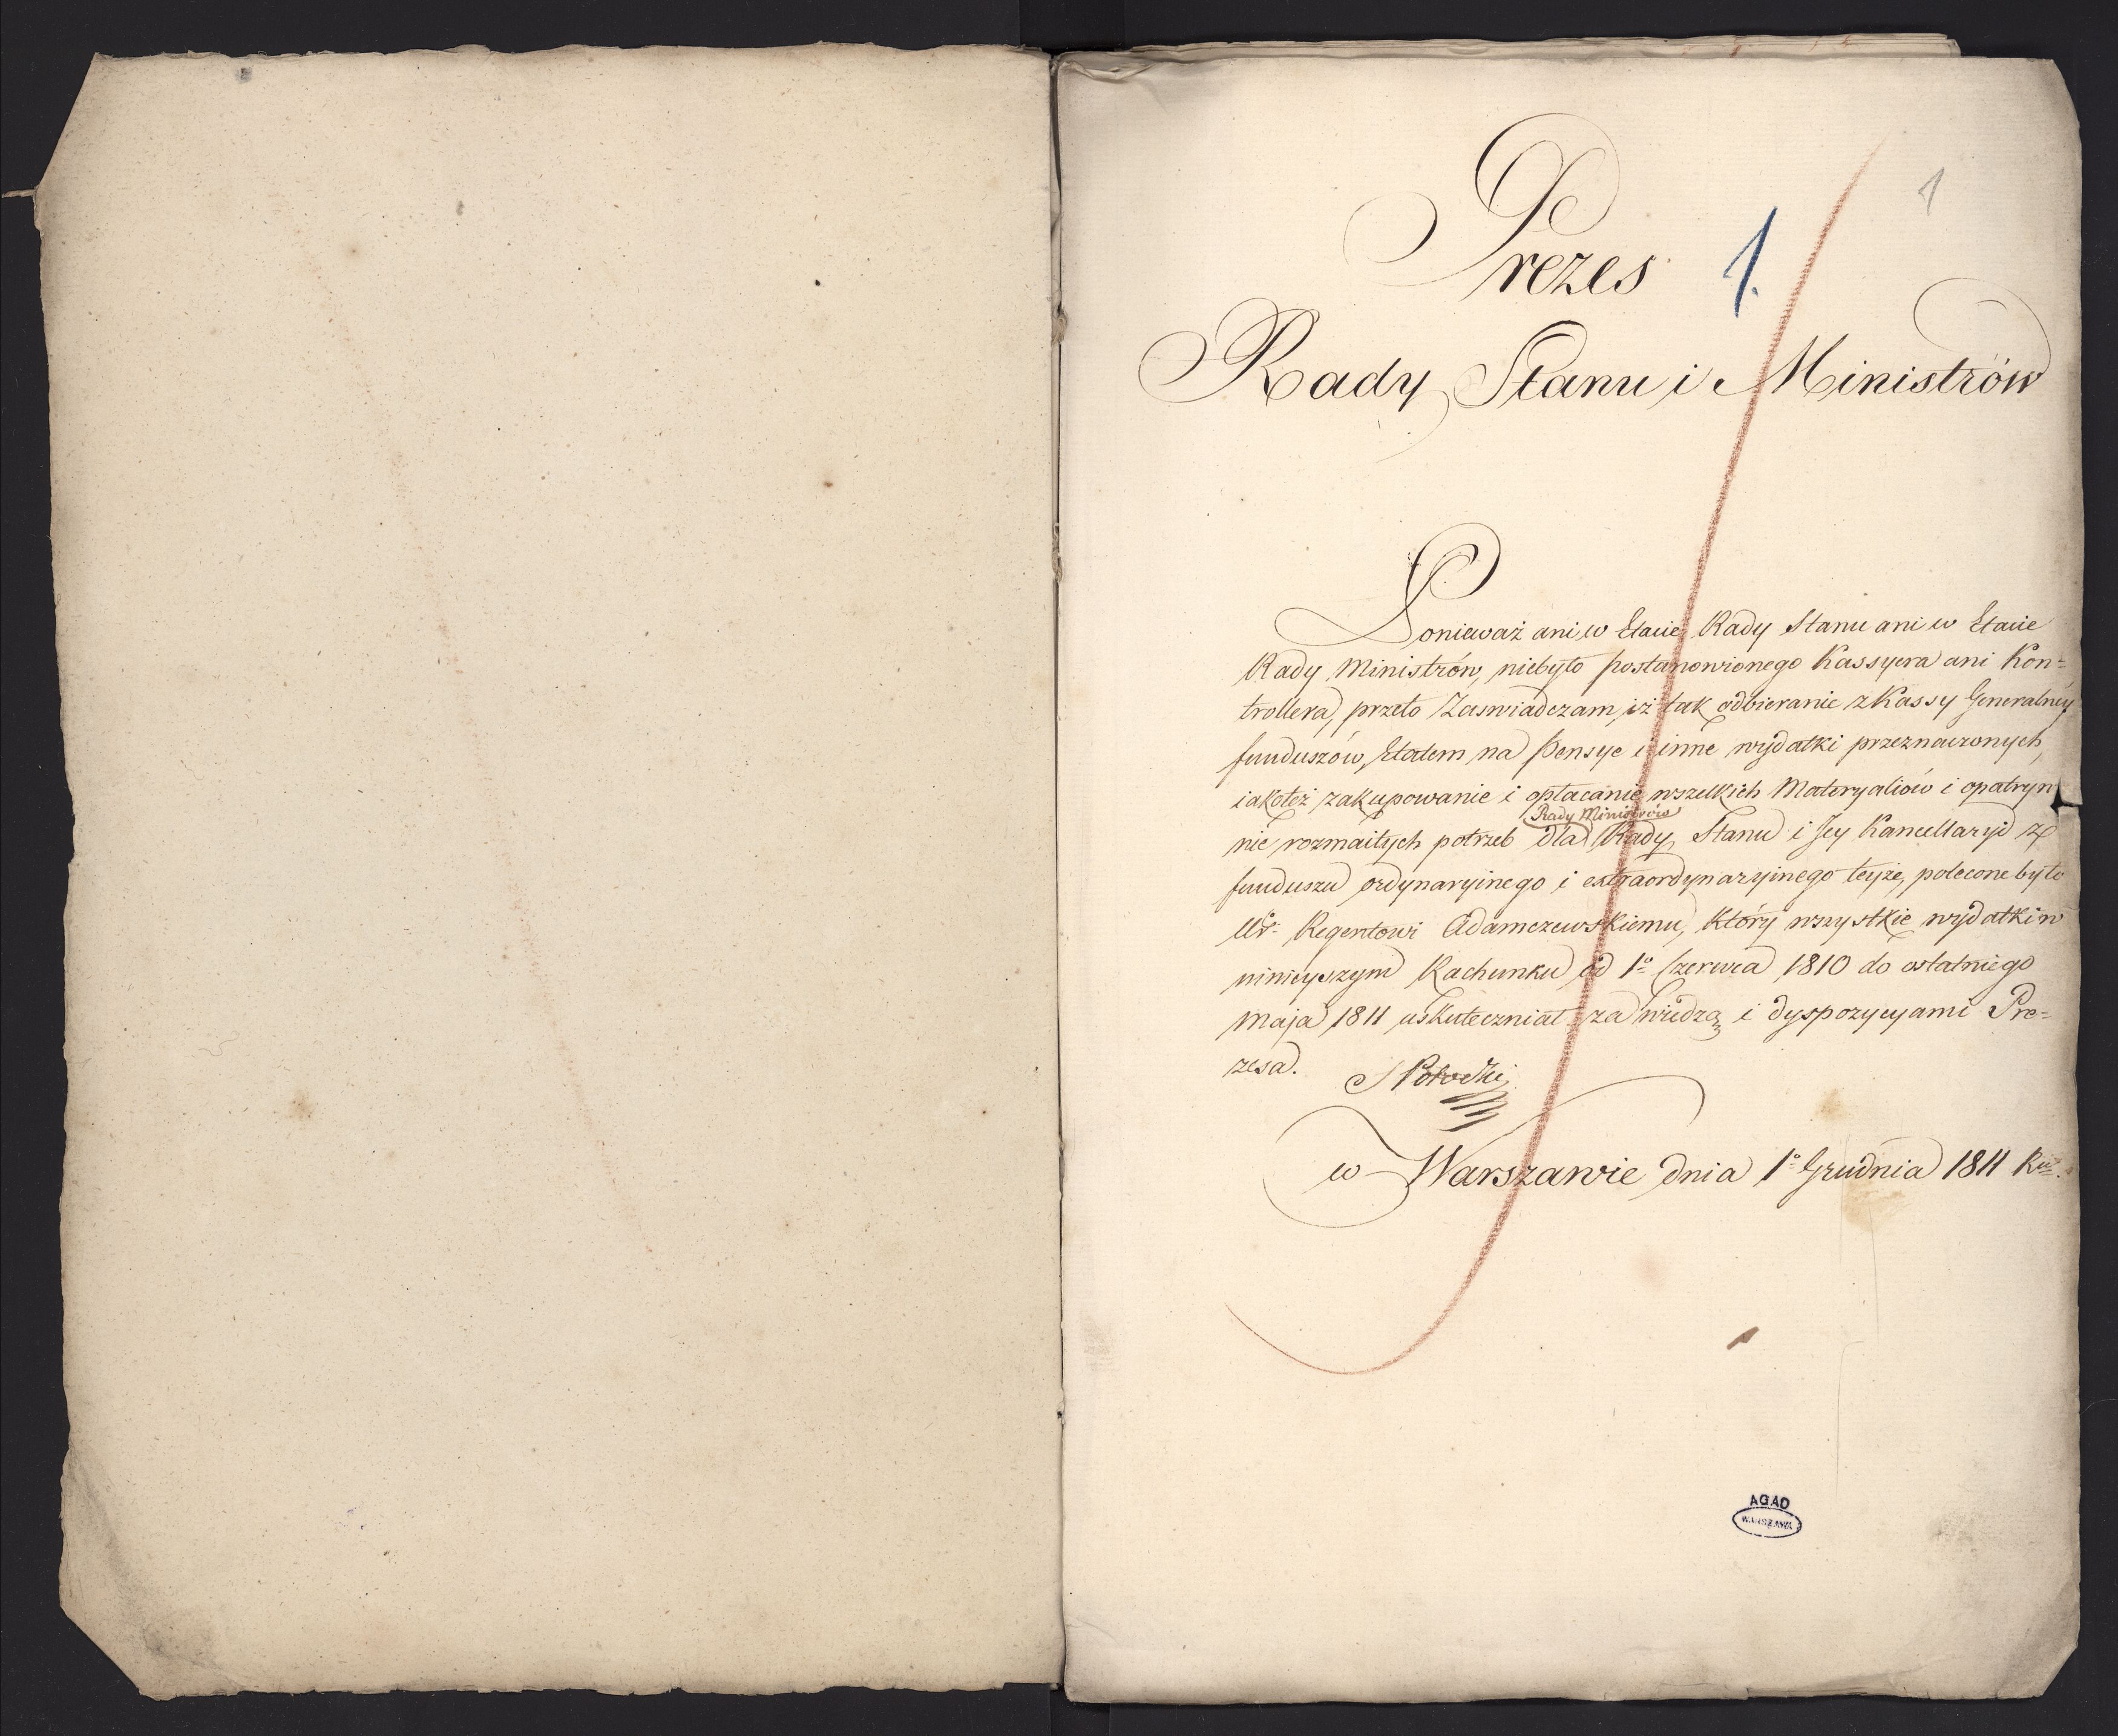 1
Prezes 1.
Rady Stanu i Ministrów
Ponieważ ani w Etacie Rady Stanu ani w Etacie
Rady Ministrów, niebyło postanowionego Kassyera ani Kon=
trollera, przeto Zaswiadczam iż tak odbieranie z Kassy Generalnéy
funduszów, Etatem na Pensye i inne wydatki przeznaczonych,
iakoteż zakupowanie i opłacanie wszelkich Materyałiów i opatryw
Rady Ministrów
nie rozmaitych potrzeb dla Rady Stanu i Jey Kancellaryi z
funduszu ordynaryinego i extraordynaryinego teyże, polecone było
Ur. Regentowi Adamczewskiemu, Który wszystkie wydatki w
ninieyszym Rachunku od 1o Czerwca 1810 do ostatniego
Maja 1811 uskuteczniał za wiedzą i dyspozycyami Pre=
zesa.
S Potocki
w Warszawie dnia 1o Grudnia 1811 Ru.
AGAD
WARSZAWA